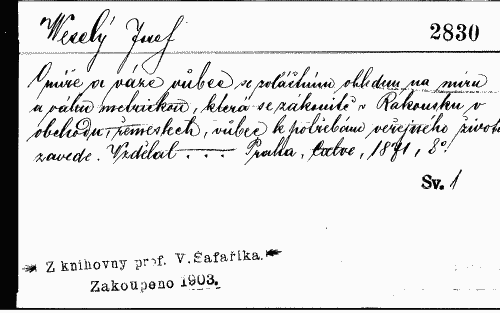 Veselý Josef
2830
O míře a váze vůbec se zvláštním ohledem na míru
a váhu metrickou, která se zákonitě v Rakousku v
obchodu, řemeslech, vůbec k potřebám veřejného života
zavede. Vzdělal . . . Praha, 1871, 8º.
Sv. 1
Z knihovny prof. V. Šafaříka.
Zakoupeno 1903.